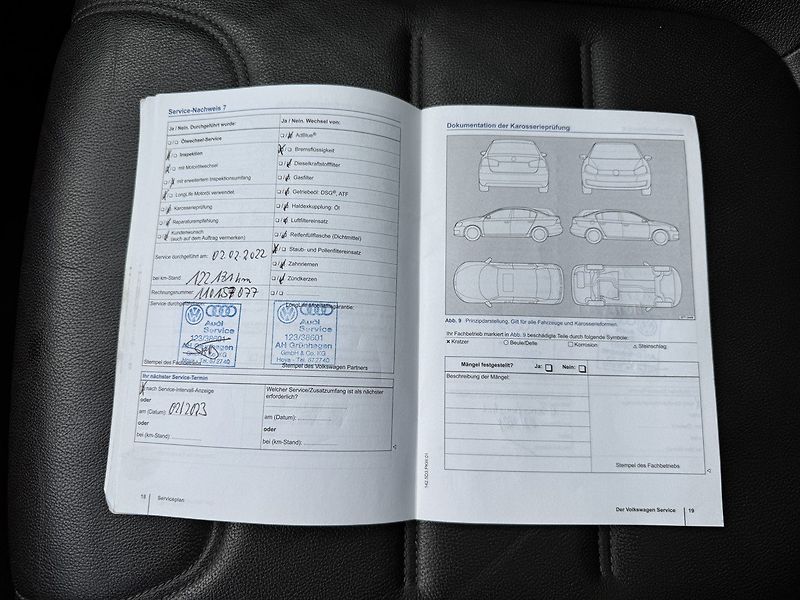 Service-Nachweis 7
Ja / Nein. Durchgeführt wurde:
Ölwechsel-Service
Inspektion
mit Motorölwechsel
mit erweitertem Inspektionsumfang
LongLife Motoröl verwendet
Karosserieprüfung
Reparaturempfehlung
Kundenwunsch
(auch auf dem Auftrag vermerken)
Service durchgeführt am: 02.02.2022
bei km-Stand: 122131 km
Rechnungsnummer: 110157077
Service durchgeführt
Audi
Service
123/38601
AH Grünhagen
GmbH & Co. KG
Hoya - Tel. 672740
Stempel des Fachbetriebs
Ja / Nein. Wechsel von:
AdBlue®
Bremsflüssigkeit
Dieselkraftstofffilter
Gasfilter
Getriebeöl: DSG®, ATF
Haldexkupplung: Öl
Luftfiltereinsatz
Reifenfüllflasche (Dichtmittel)
Staub- und Pollenfiltereinsatz
Zahnriemen
Zündkerzen
LongLife Mobilitätsgarantie:
Audi
Service
123/38601
AH Grünhagen
GmbH & Co. KG
Hoya - Tel. 672740
Stempel des Volkswagen Partners
Ihr nächster Service-Termin
nach Service-Intervall-Anzeige
oder
am (Datum): 02/2023
oder
bei (km-Stand):
Welcher Service/Zusatzumfang ist als nächster
erforderlich?
am (Datum):
oder
bei (km-Stand):
18 Serviceplan
Dokumentation der Karosserieprüfung
Abb. 9 Prinzipdarstellung. Gilt für alle Fahrzeuge und Karosserieformen.
Ihr Fachbetrieb markiert in Abb. 9 beschädigte Teile durch folgende Symbole:
× Kratzer ○ Beule/Delle □ Korrosion △ Steinschlag
Mängel festgestellt? Ja: Nein:
Beschreibung der Mängel:
Stempel des Fachbetriebs
Der Volkswagen Service 19